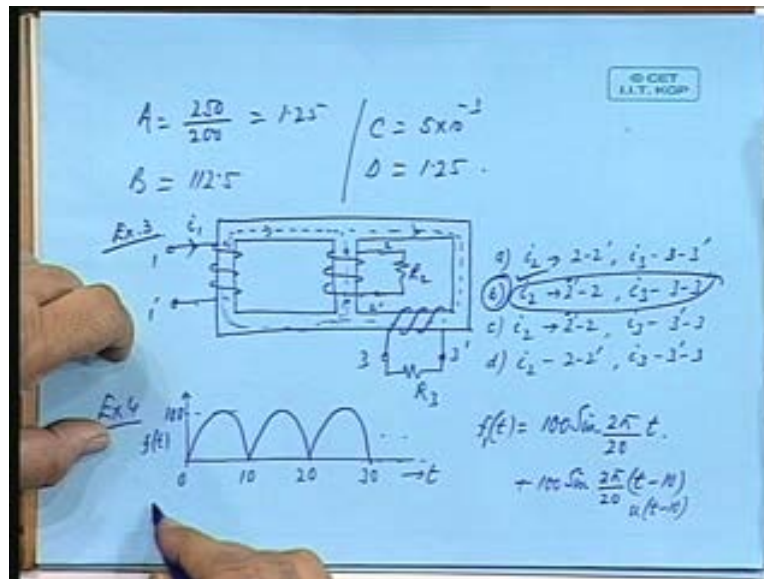 © CET
I.I.T. KGP
A = 250/200 = 1.25
C = 5×10⁻³
B = 112.5
D = 1.25.
Ex.3
i₁
1
1'
2
R₂
2'
3
3'
R₃
a) i₂ → 2-2', i₃ - 3-3'
b) i₂ → 2'-2, i₃ - 3-3'
c) i₂ → 2'-2, i₃ - 3'-3
d) i₂ - 2-2', i₃ - 3'-3
Ex.4
100
f(t)
0 10 20 30 →t
...
f₁(t) = 100 Sin 2π/20 t.
+ 100 Sin 2π/20 (t-10)
u(t-10)